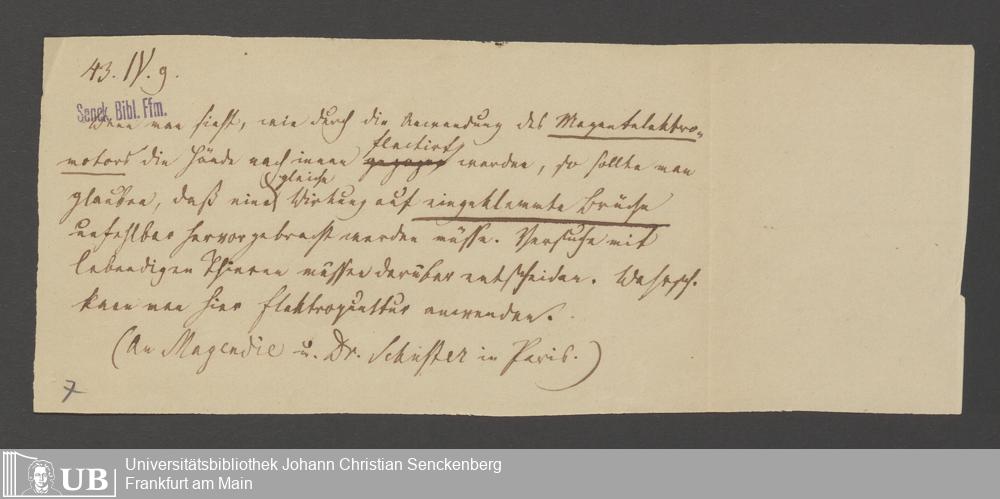 43. IV. 9.
Senck. Bibl. Ffm.
Wenn man sieht, wie durch die Anwendung des Magentelektro-
flectirt
motors die Hände nach innen gezogen werden, so sollte man
gleiche
glauben, daß eine Wirkung auf eingeklemmte Brüche
unfehlbar hervorgebracht werden müsse. Versuche mit
lebendigen Thieren müssen darüber entscheiden. Wahrsch.
kann man hier Elektropunktur anwenden.
(An Magendie u. Dr. Schuster in Paris.)
7
UB
Universitätsbibliothek Johann Christian Senckenberg
Frankfurt am Main